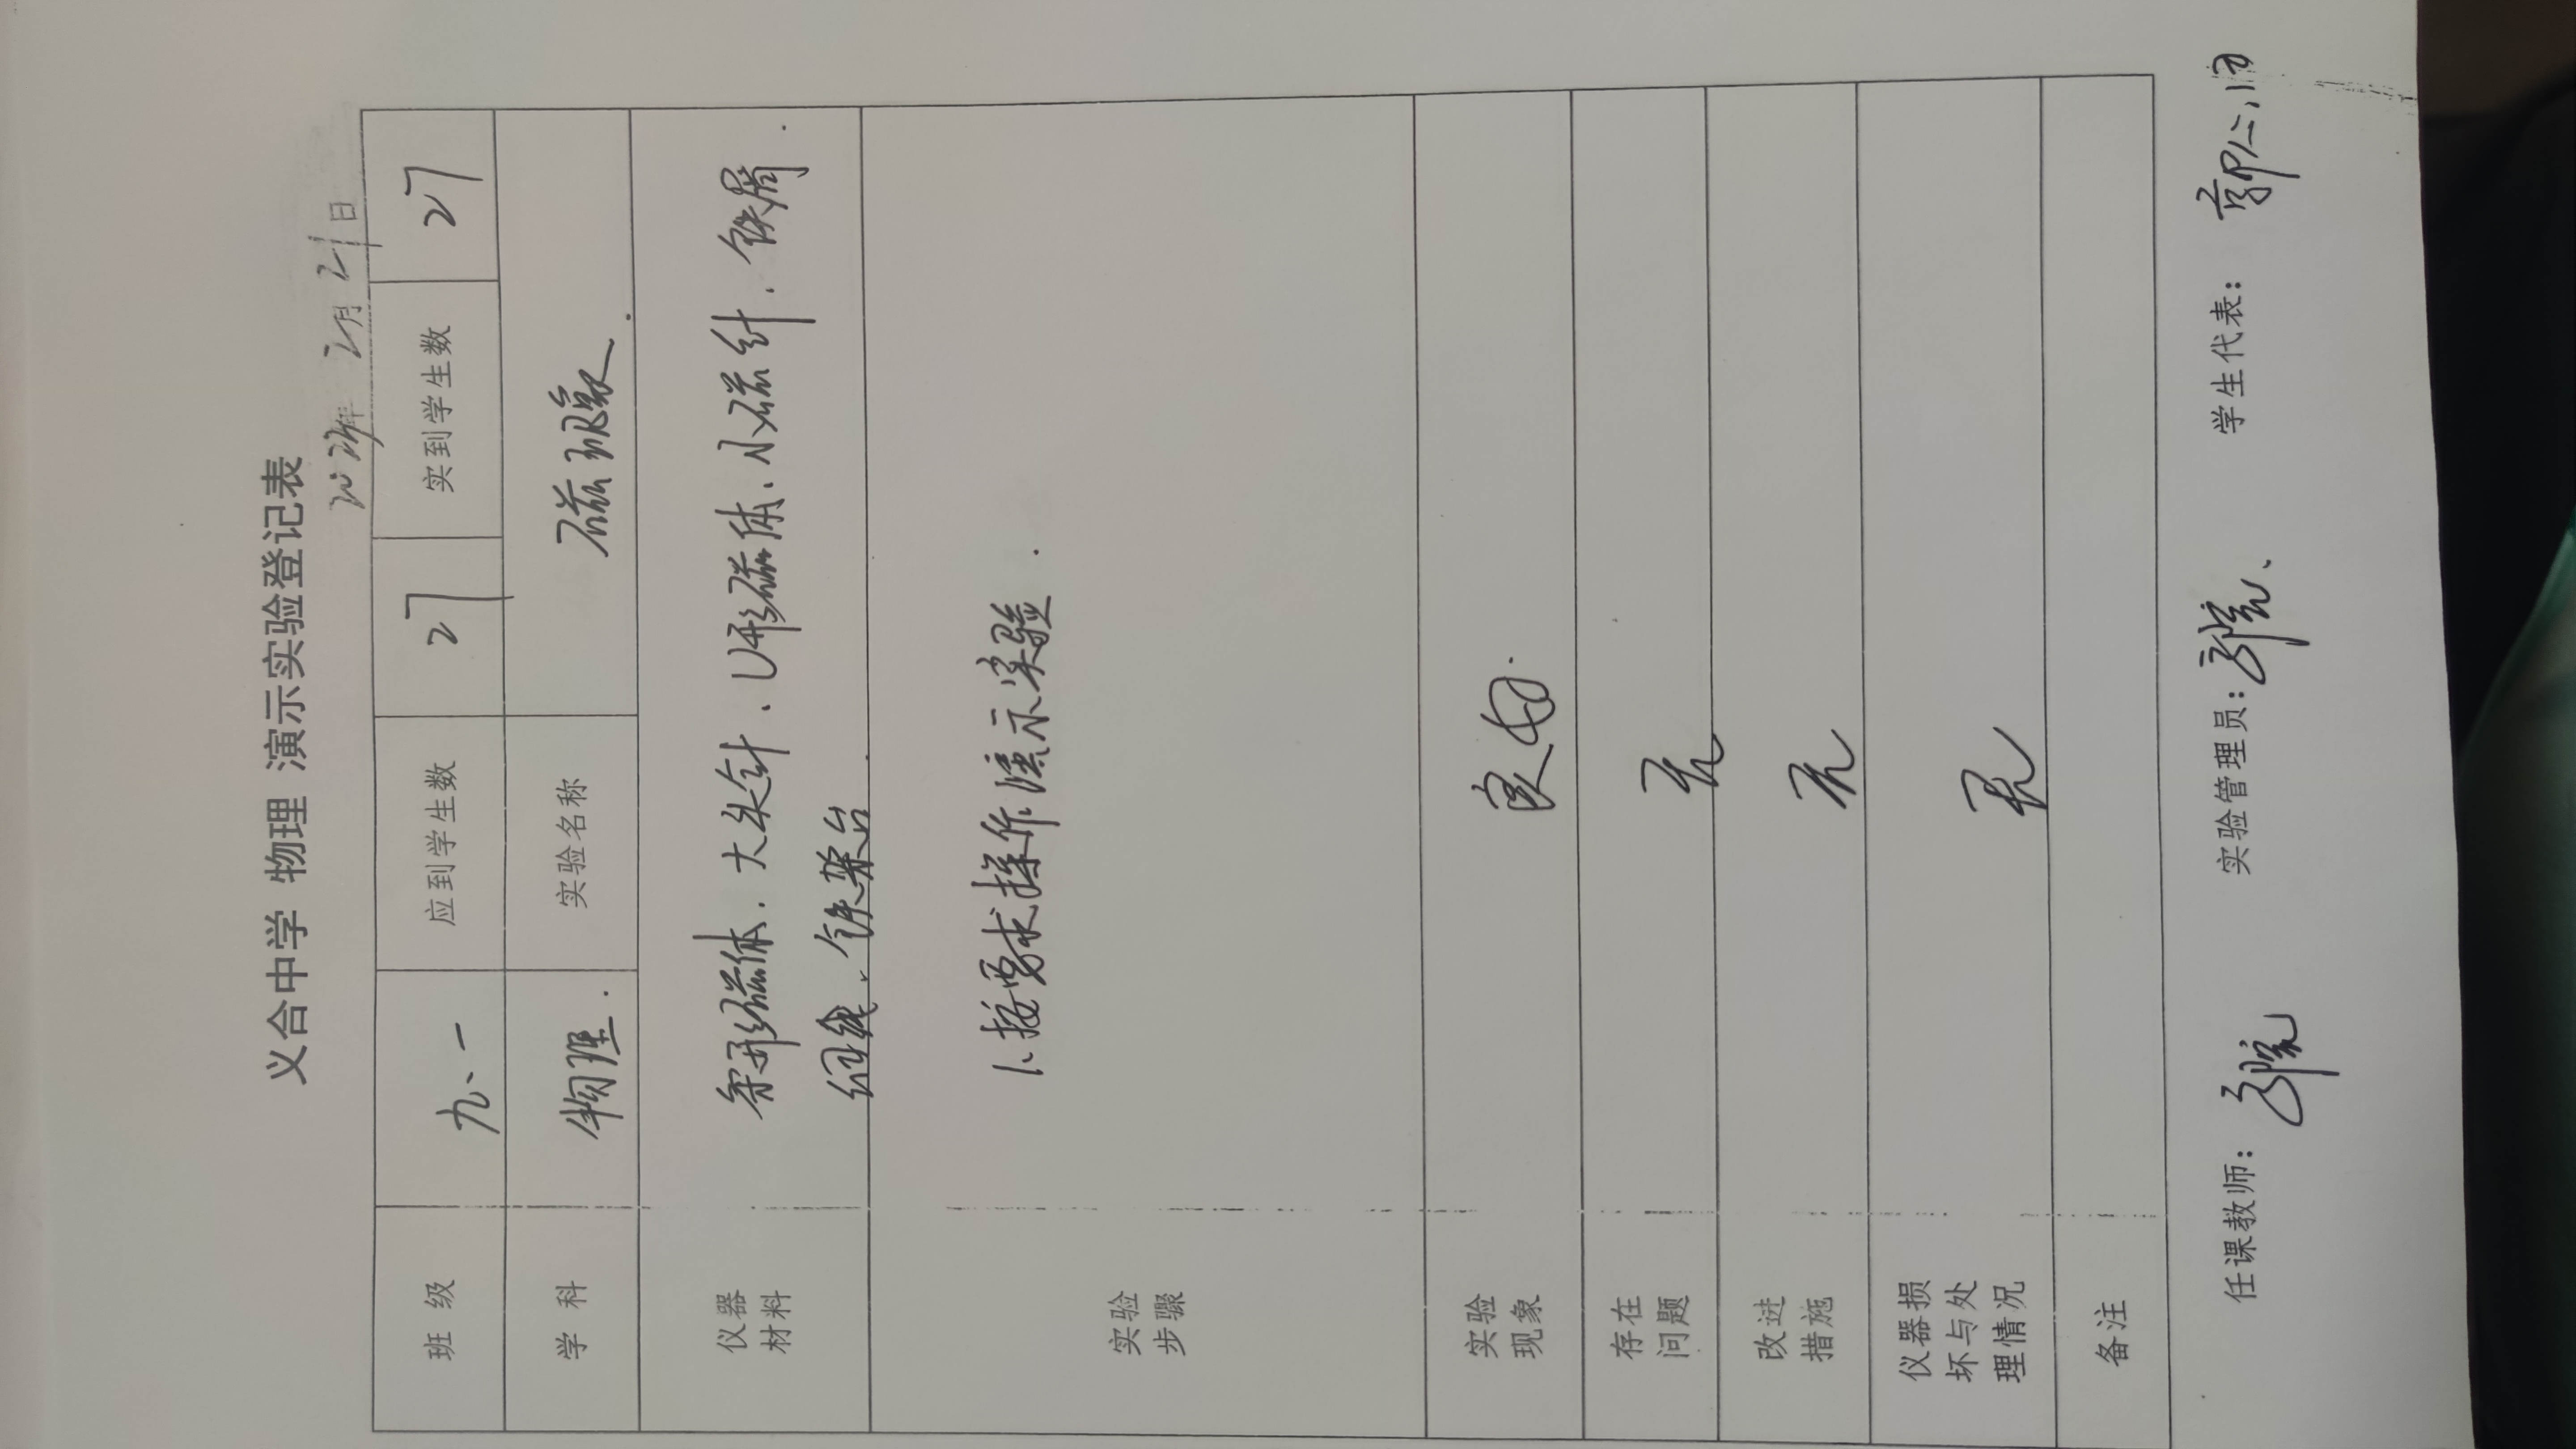 义合中学 物理 演示实验登记表
年 2月 21日
班 级 九、一 应到学生数 27 实到学生数 27
学 科 物理. 实验名称 磁现象.
仪器材料 条形磁体、大头针、U形磁体、小磁针、铁屑.
细线、铁架台
实验步骤 1、按要求操作演示实验.
实验现象 良好.
存在问题 无
改进措施 无
仪器损坏与处理情况 无
备注
任课教师: 实验管理员: 学生代表: 郭